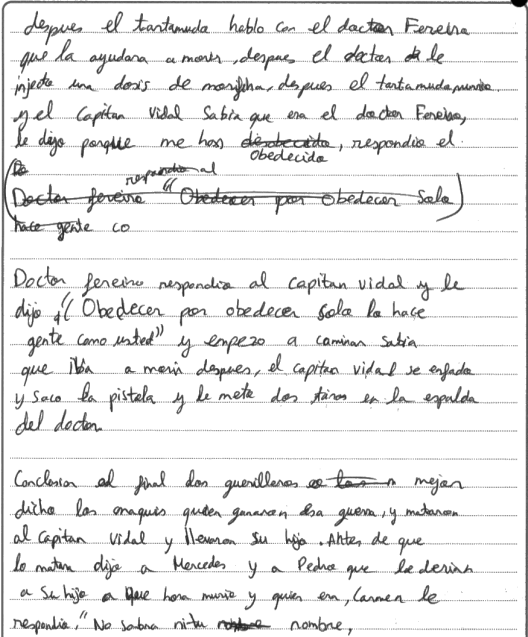 despues el tartamuda hablo con el doctor Fereira
que la ayudara a morir, despues el doctor le
injecto una dosis de morfina, despues el tartamuda murio.
y el capitan Vidal Sabia que era el doctor Fereiro,
le dijo porque me has desobecido, respondio el
obedecido
Do
respondio al
Doctor fereiro “Obedecer por obedecer Solo
hace gente co
Doctor fereiro respondio al capitan vidal y le
dijo “Obedecer por obedecer solo lo hace
gente como usted” y empezo a caminar sabia
que iba a morir despues, el capitan vidal se enfado
y saco la pistola y le mete dos tiros en la espalda
del doctor.
Conclusion al final los guerilleros mejor
dicho los maquis ganaron esa guerra, y mataron
al Capitan Vidal y llevaron su hijo. Antes de que
lo matan dijo a Mercedes y a Pedro que le dirian
a su hijo a que hora murio y quien era, Carmen le
respondio, “No sabra ni tu nombre,